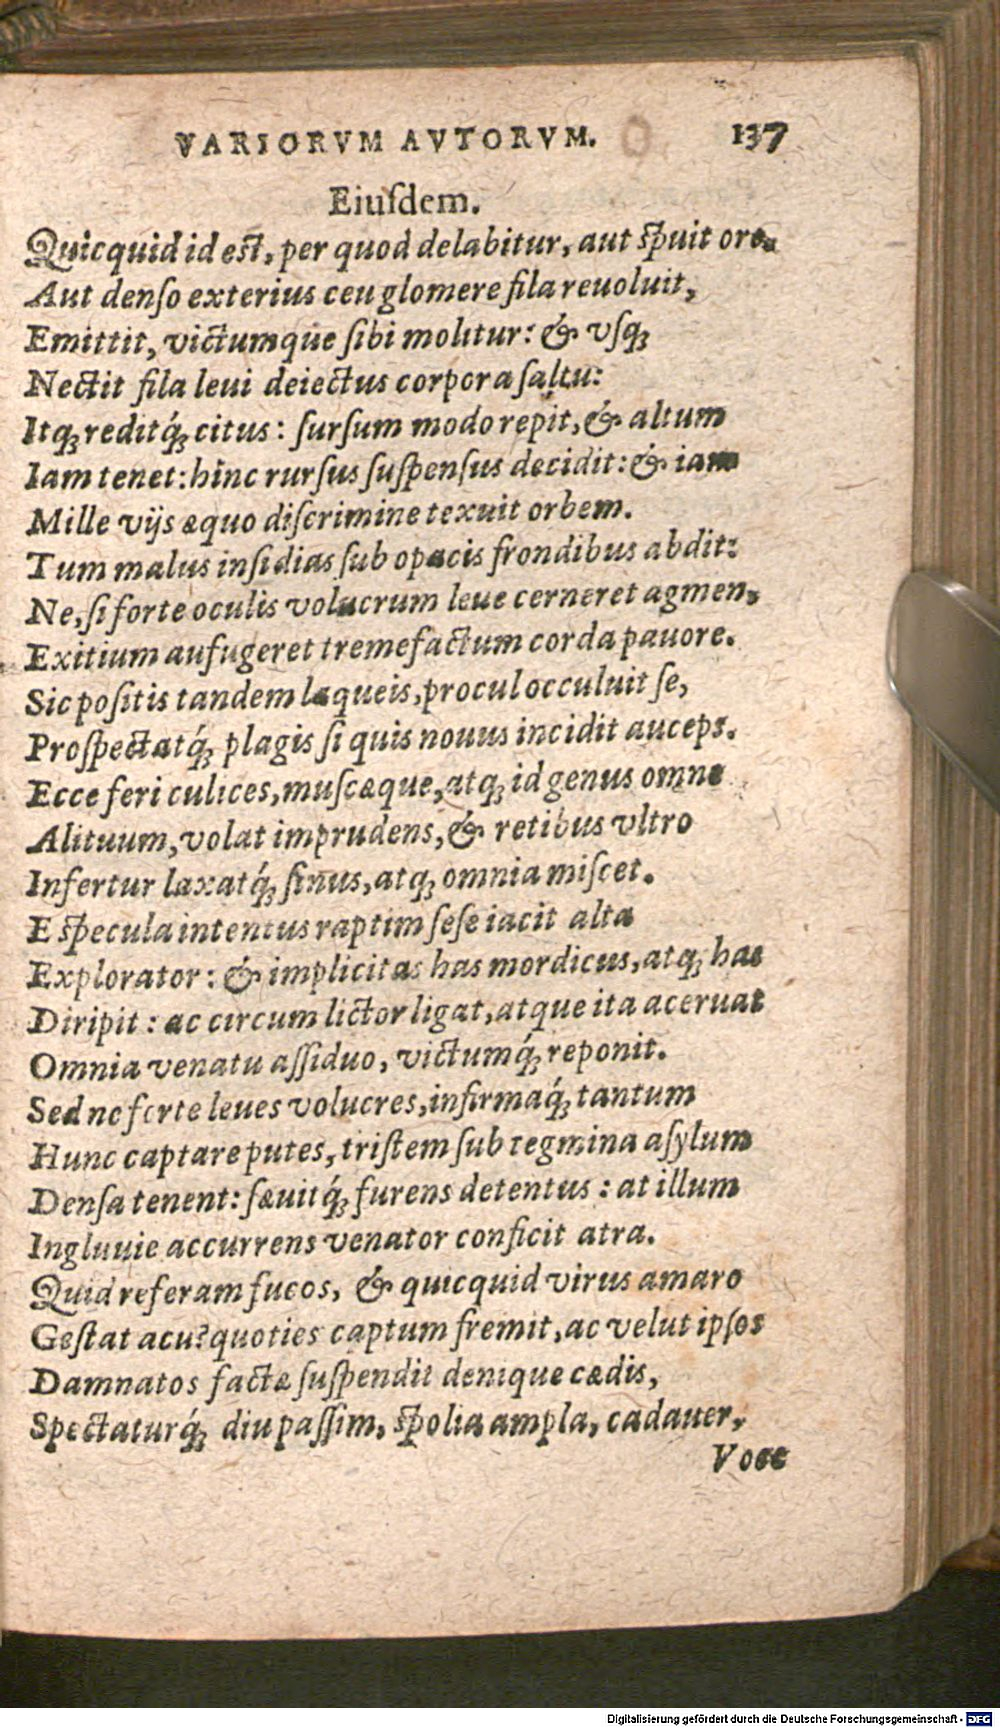 VARIORVM AVTORVM. 137
Eiuſdem.
Quicquid id eſt, per quod delabitur, aut ſpuit ore,
Aut denſo exterius ceu glomere fila reuoluit,
Emittit, victumque ſibi molitur: & vſqꝫ
Nectit fila leui deiectus corpora ſaltu:
Itqꝫ reditq́ꝫ citus: ſurſum modo repit, & altum
Iam tenet: hinc rurſus ſuſpenſus decidit: & iam
Mille vijs æquo diſcrimine texuit orbem.
Tum malus inſidias ſub opacis frondibus abdit:
Ne, ſi forte oculis volucrum leue cerneret agmen,
Exitium aufugeret tremefactum corda pauore.
Sic poſitis tandem laqueis, procul occuluit ſe,
Proſpectatq́ꝫ plagis ſi quis nouus incidit auceps.
Ecce feri culices, muſcæque, atqꝫ id genus omne
Alituum, volat imprudens, & retibus vltro
Infertur laxatq́ꝫ ſinus, atqꝫ omnia miſcet.
E ſpecula intentus raptim ſeſe iacit alta
Explorator: & implicitas has mordicus, atqꝫ has
Diripit: ac circum lictor ligat, atque ita aceruat
Omnia venatu aſſiduo, victumq́ꝫ reponit.
Sed ne forte leues volucres, infirmaq́ꝫ tantum
Hunc captare putes, triſtem ſub tegmina aſylum
Denſa tenent: ſæuitq́ꝫ furens detentus: at illum
Ingluuie accurrens venator conficit atra.
Quid referam fucos, & quicquid virus amaro
Geſtat acu? quoties captum fremit, ac velut ipſos
Damnatos factæ ſuſpendit denique cædis,
Spectaturq́ꝫ diu paſſim, ſpolia ampla, cadauer,
Voce
Digitalisierung gefördert durch die Deutsche Forschungsgemeinschaft - DFG